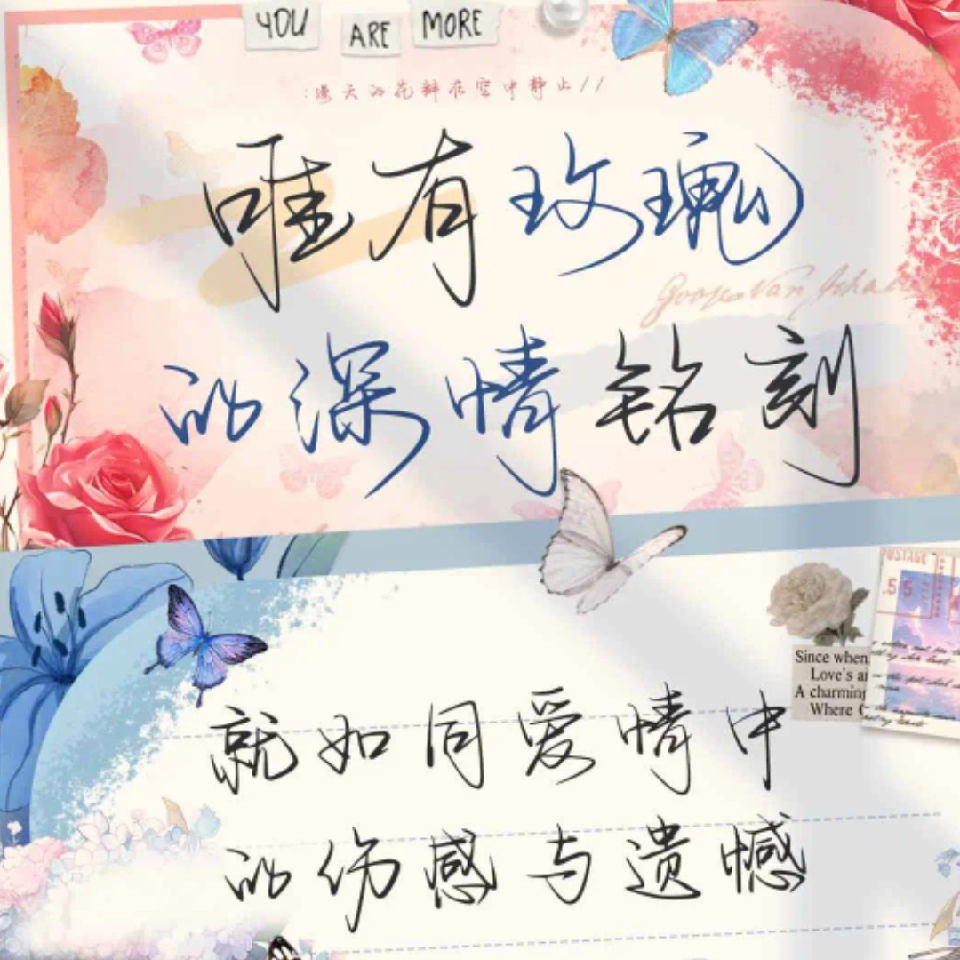 YOU ARE MORE
:漫天的花瓣在空中静止//
唯有玫瑰
的深情铭刻
POSTAGE
.55
Since when
Love's
A charming
Where
就如同爱情中
的伤感与遗憾